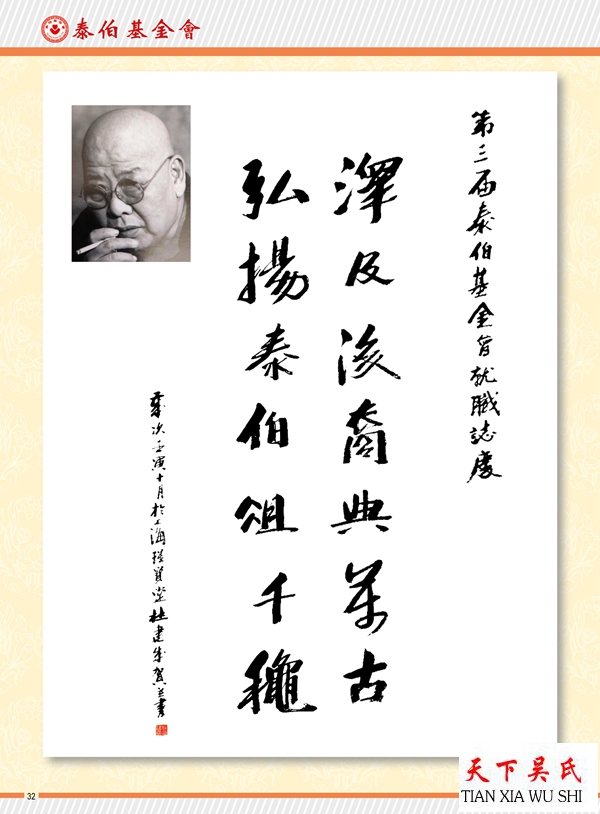 泰伯基金會
第三届泰伯基金會就職誌慶
澤及後裔典萬古
弘揚泰伯俎千龝
歲次壬寅十月於上海 堂杜建 賀並書
32
天下吴氏
TIAN XIA WU SHI